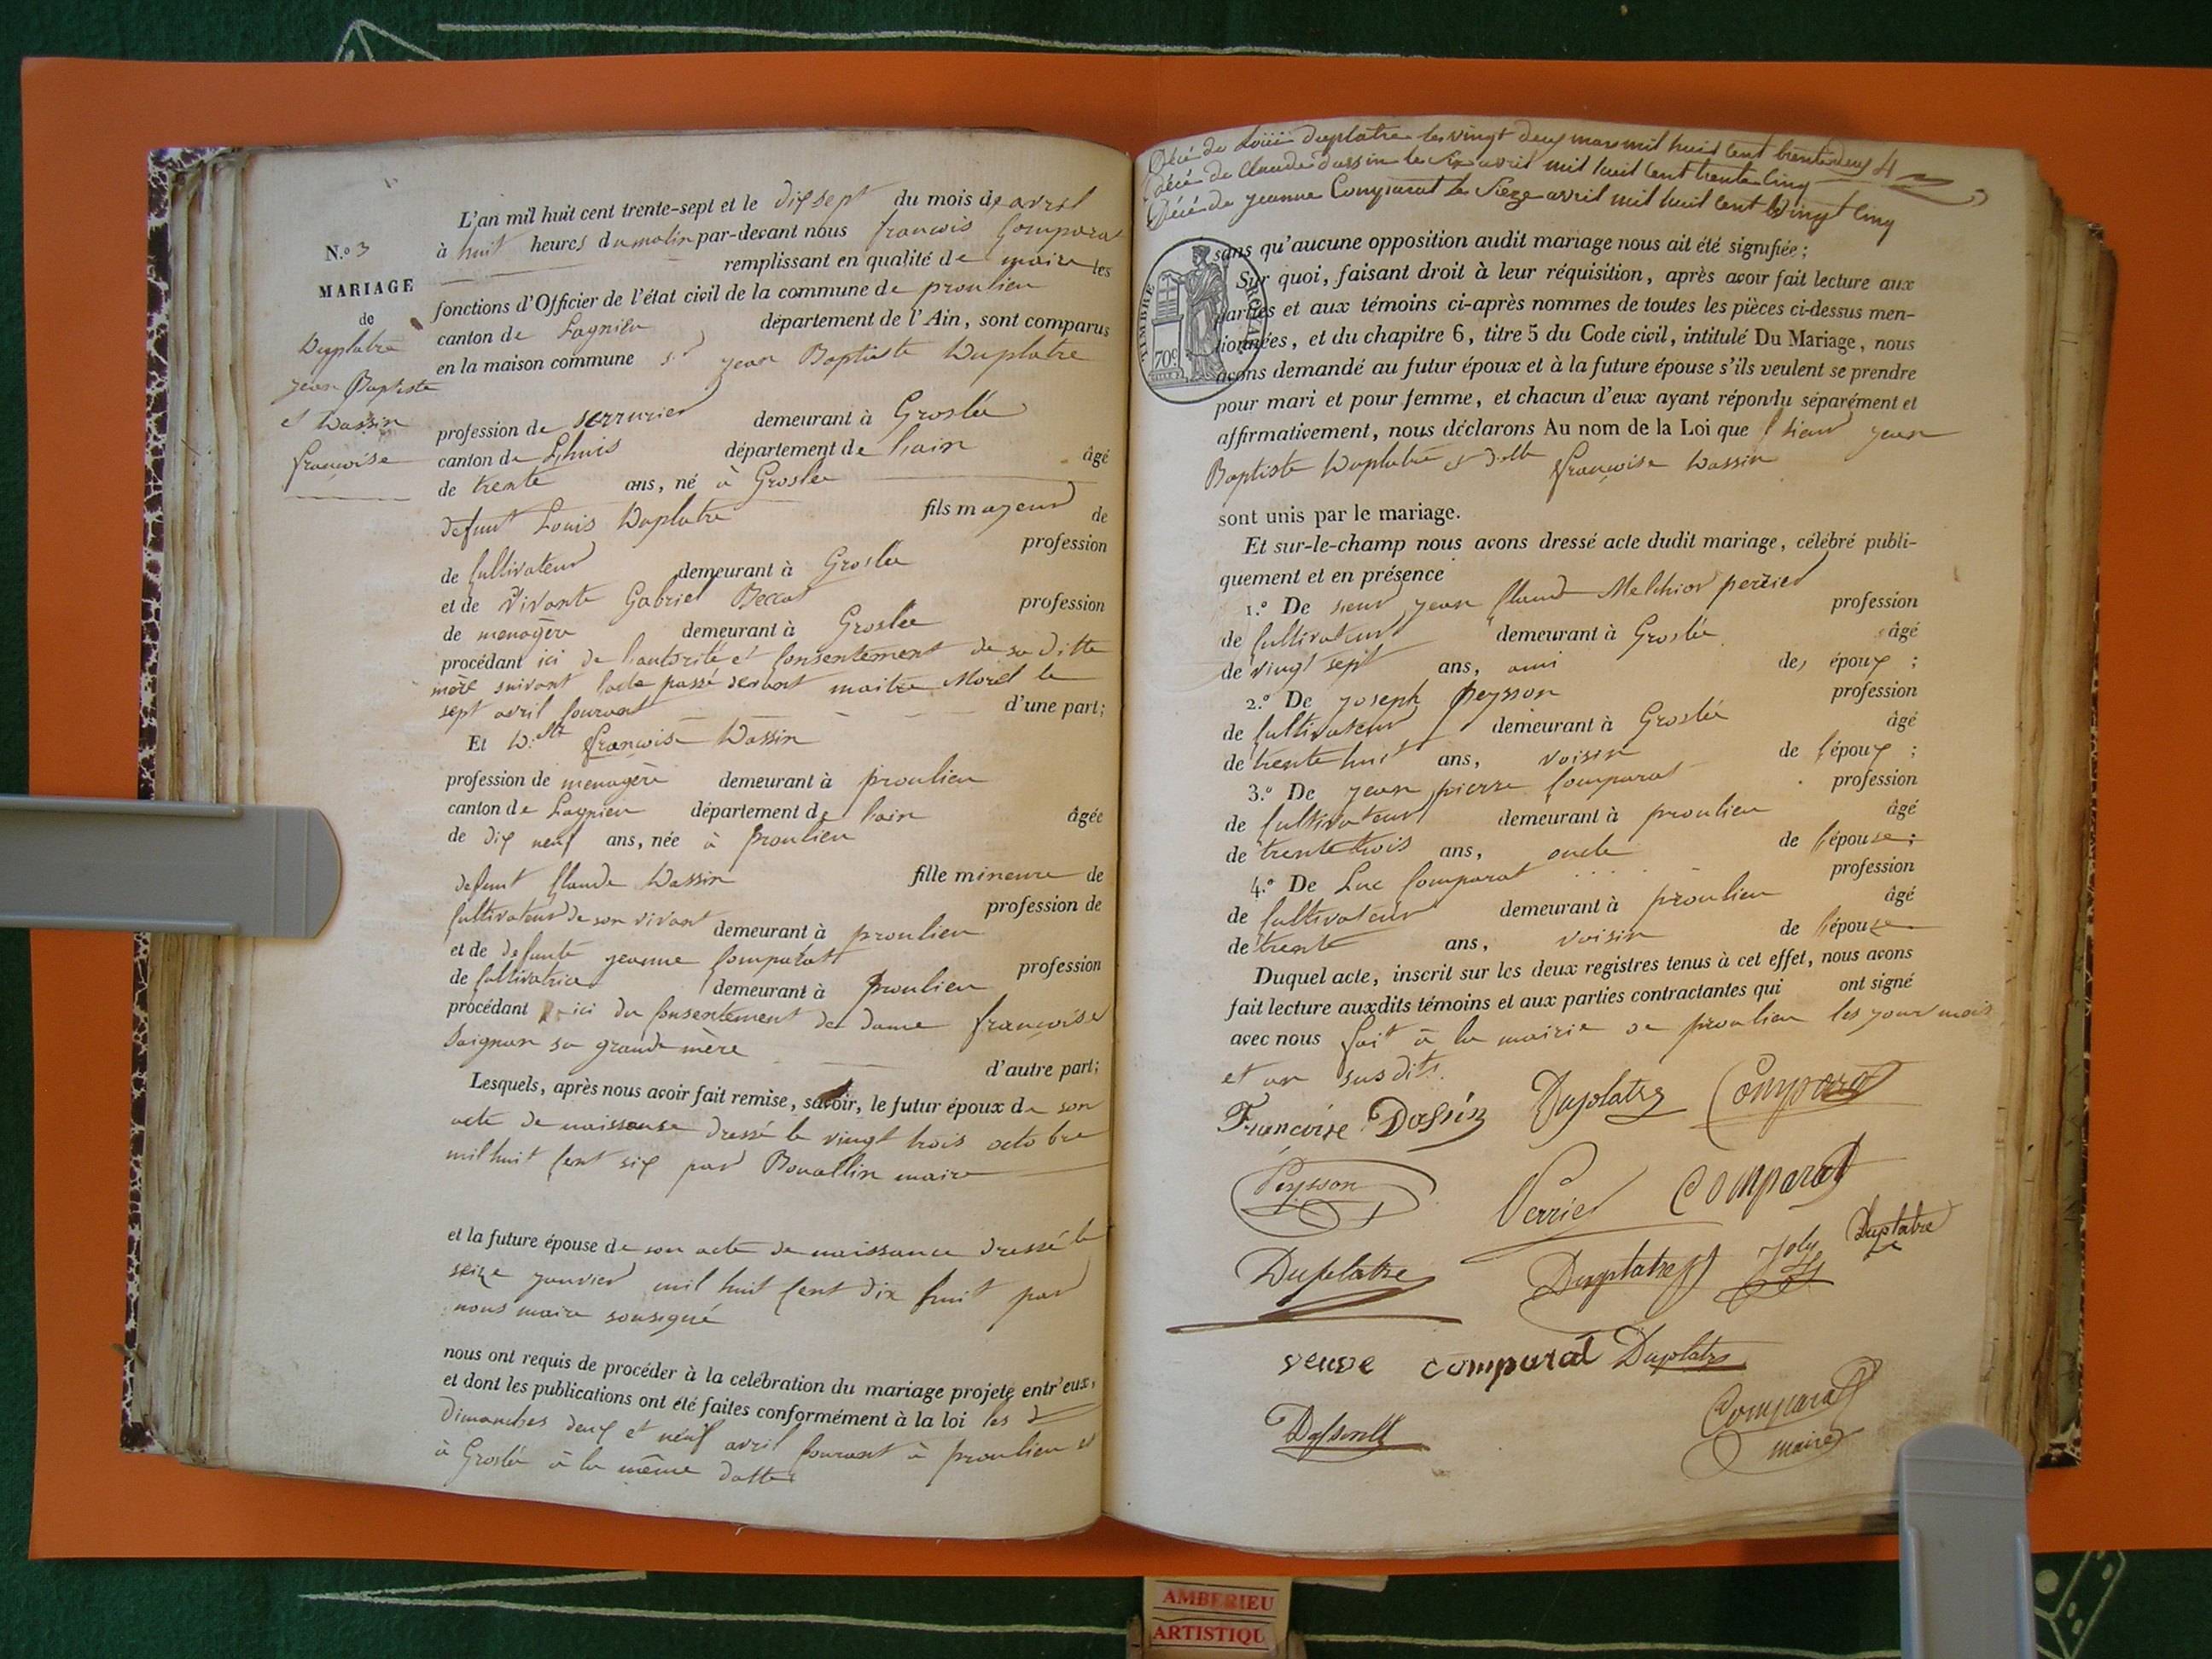 N.o 3
MARIAGE
de
Duplatre
jean Baptiste
et Dassin
françoise
L'an mil huit cent trente-sept et le dix sept du mois de avril
à huit heures du matin par-devant nous françois Comparat
remplissant en qualité de maire les
fonctions d'Officier de l'état civil de la commune de proulieu
canton de Lagnieu département de l'Ain, sont comparus
en la maison commune s.r jean Baptiste Duplatre
profession de serrurier demeurant à Groslée
canton de Lhuis département de l'ain âgé
de trente ans, né à Groslée
fils majeur de
defunt Louis Duplatre profession
de Cultivateur demeurant à Groslée
et de vivante Gabriel Beccat profession
de menagère demeurant à Groslée
procédant ici de l'autorité et consentement de sa ditte
mère suivant l'acte passé devant maitre Morel le
sept avril courant d'une part;
Et D.elle françoise Dassin
profession de menagère demeurant à proulieu
canton de Lagnieu département de l'ain âgée
de dix neuf ans, née à proulieu
fille mineure de
defunt Claude Dassin profession de
Cultivateur de son vivant demeurant à proulieu
et de defunte jeanne Comparat profession
de Cultivatrice demeurant à proulieu
procédant ici du consentement de dame françoise
Saignan sa grande mère
d'autre part;
Lesquels, après nous avoir fait remise, savoir, le futur époux de son
acte de naissance dressé le vingt trois octobre
mil huit cent six par Bouallin maire
et la future épouse de son acte de naissance dressé le
seize janvier mil huit cent dix huit par
nous maire sousigné
nous ont requis de procéder à la celébration du mariage projeté entr'eux,
et dont les publications ont été faites conformément à la loi les
Dimanches deux et neuf avril courant à proulieu et
à Groslée à la même datte
Décé de Loüis duplatre le vingt deux mars mil huit cent trente deux 4
décé de Claude dassin le six avril mil huit cent trente cinq
Décé de jeanne Comparat le seze avril mil huit cent vingt cinq
TIMBRE ROYAL
70c
sans qu'aucune opposition audit mariage nous ait été signifiée;
Sur quoi, faisant droit à leur réquisition, après avoir fait lecture aux
parties et aux témoins ci-après nommes de toutes les pièces ci-dessus men-
tionnées, et du chapitre 6, titre 5 du Code civil, intitulé Du Mariage, nous
avons demandé au futur époux et à la future épouse s'ils veulent se prendre
pour mari et pour femme, et chacun d'eux ayant répondu séparément et
affirmativement, nous déclarons Au nom de la Loi que sieur jean
Baptiste Duplatre et d.elle françoise Dassin
sont unis par le mariage.
Et sur-le-champ nous avons dressé acte dudit mariage, célébré publi-
quement et en présence
1.o De sieur jean Claude Melchior perrier profession
de Cultivateur demeurant à Groslée âgé
de vingt sept ans, ami des époux;
2.o De joseph peysson profession
de Cultivateur demeurant à Groslée âgé
de trente huit ans, voisin de l'époux;
3.o De jean pierre Comparat profession
de Cultivateur demeurant à proulieu âgé
de trente trois ans, oncle de l'épouse;
4.o De Luc Comparat profession
de Cultivateur demeurant à proulieu âgé
de trente ans, voisin de l'épouse
Duquel acte, inscrit sur les deux registres tenus à cet effet, nous avons
fait lecture auxdits témoins et aux parties contractantes qui ont signé
avec nous fait à la mairie de proulieu les jour mois
et an susdits.
Francoise Dassin Duplatre Comparat
Peysson Perrier Comparat
Duplatre Duplatre Joly Duplatre
veuve comparat Duplatre
Comparat
maire
AMBERIEU
ARTISTIQU